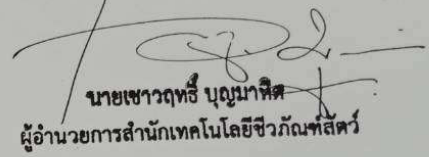 นายเชาวฤทธิ์ บุญมาทิต
ผู้อำนวยการสำนักเทคโนโลยีชีวภัณฑ์สัตว์